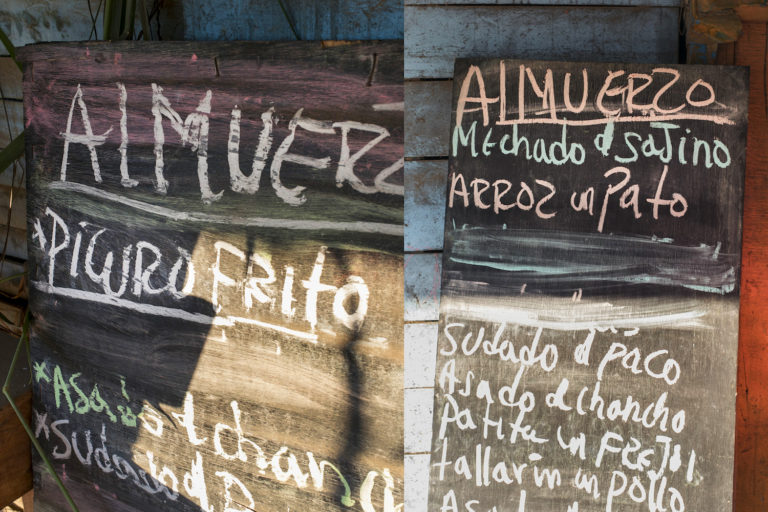 AlMUERZ
*PiGURO FRito
*Asado d chanc
*Sudado d P
AlMUERZO
MEchado d SaJino
ARROZ un Pato
Sudado d paco
Asado d chancho
Patita un FREJil
tallarin un pollo
Asado